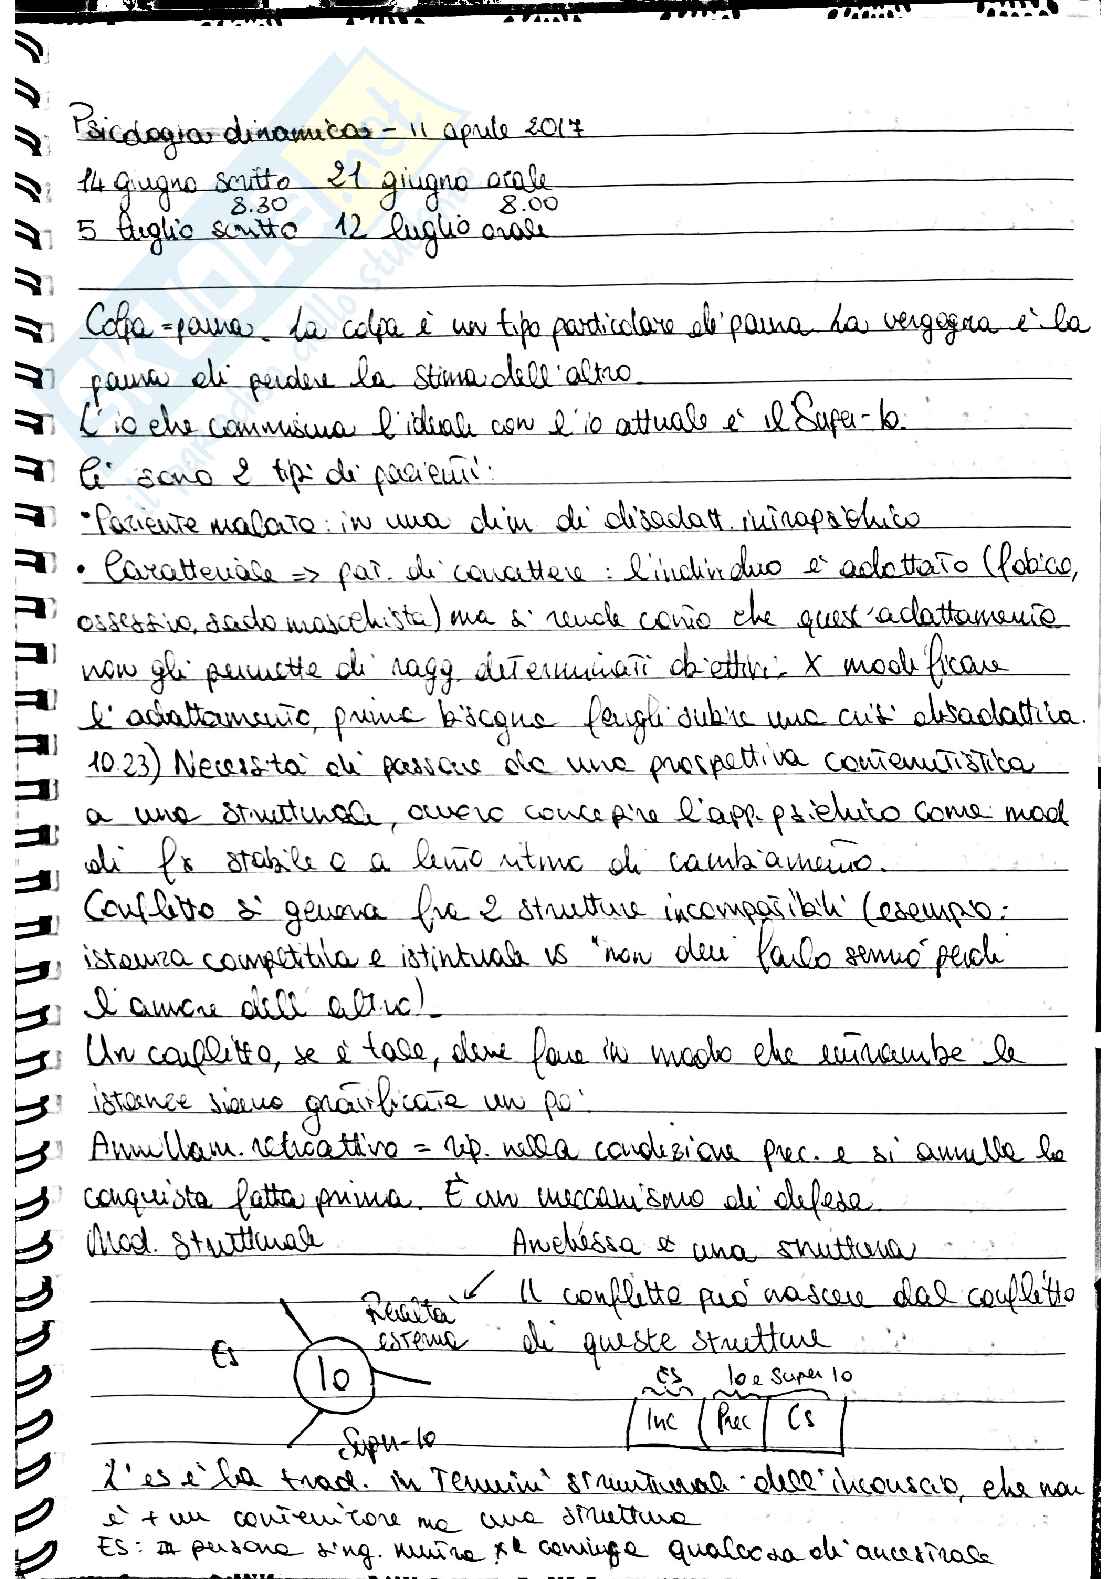 Psicologia dinamica - 11 aprile 2017
14 giugno scritto 21 giugno orale
8.30 8.00
5 luglio scritto 12 luglio orale
Colpa = paura. La colpa è un tipo particolare di paura. La vergogna è la
paura di perdere la stima dell'altro.
L'io che commisura l'ideale con l'io attuale è il Super-Io.
Ci sono 2 tipi di pazienti:
• Paziente malato: in una dim. di disadatt. intrapsichico
• Caratteriale => pat. di carattere: l'individuo è adattato (fobico,
ossessivo, sadomasochista) ma si rende conto che quest'adattamento
non gli permette di ragg. determinati obiettivi. X modificare
l'adattamento, prima bisogna fargli subire una crisi disadattiva.
10.23) Necessità di passare da una prospettiva contenutistica
a una strutturale, ovvero concepire l'app. psichico come mod
di fx stabile o a lento ritmo di cambiamento.
Conflitto si genera fra 2 strutture incompatibili (esempio:
istanza competitiva e istintuale vs "non devi farlo sennò perdi
l'amore dell'altro)
Un conflitto, se è tale, deve fare in modo che entrambe le
istanze siano gratificate un po'.
Annullam. retroattivo = rip. nella condizione prec. e si annulla la
conquista fatta prima. È un meccanismo di difesa.
Mod. strutturale Anch'essa è una struttura
Realtà Il conflitto può nascere dal conflitto
esterna di queste strutture
Es
Io
Super-Io
Es Io e Super Io
Inc Prec Cs
L'es è la trad. in termini strutturali dell'inconscio, che non
è + un contenitore ma una struttura
ES: persona sing. neutra xk contiene qualcosa di ancestrale
SKUOLA.net
il paradiso dello studente